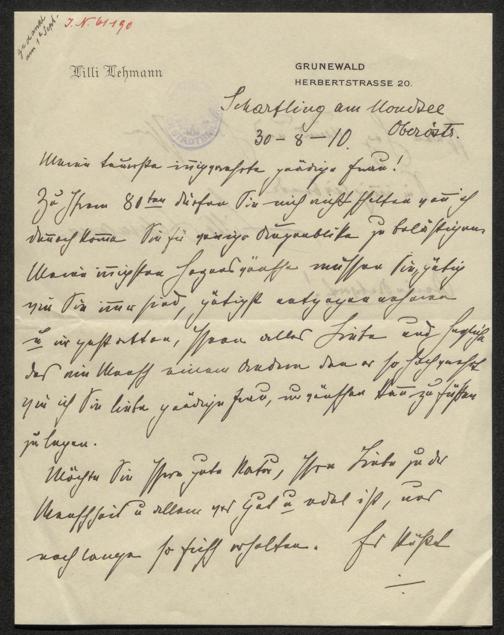 J.N. 61190
gedankt
am 1ten Sept.
Lilli Lehmann
GRUNEWALD
HERBERTSTRASSE 20.
Scharfling am Mondsee
Oberöstr.
30 - 8 - 10.
Meine teuerste innigverehrte gnädige Frau!
Zu Ihrem 80ten dürfen Sie mich nicht schelten wenn ich
dennoch komme Sie für wenige Augenblicke zu belästigen.
Meine innigsten Herzenswünsche müssen Sie, gütig
wie Sie immer sind, gütigst entgegennehmen
u mir gestatten, Ihnen alles Liebe und Herzliche
das ein Mensch einem Andern den er so hoch verehrt
wie ich Sie liebe gnädige Frau, wünschen kann zu Füßen
zu legen.
Möchte Sie Ihre gute Natur, Ihre Liebe zu der
Menschheit u allem was Gut u edel ist, uns
noch lange so frisch erhalten. Es küßt